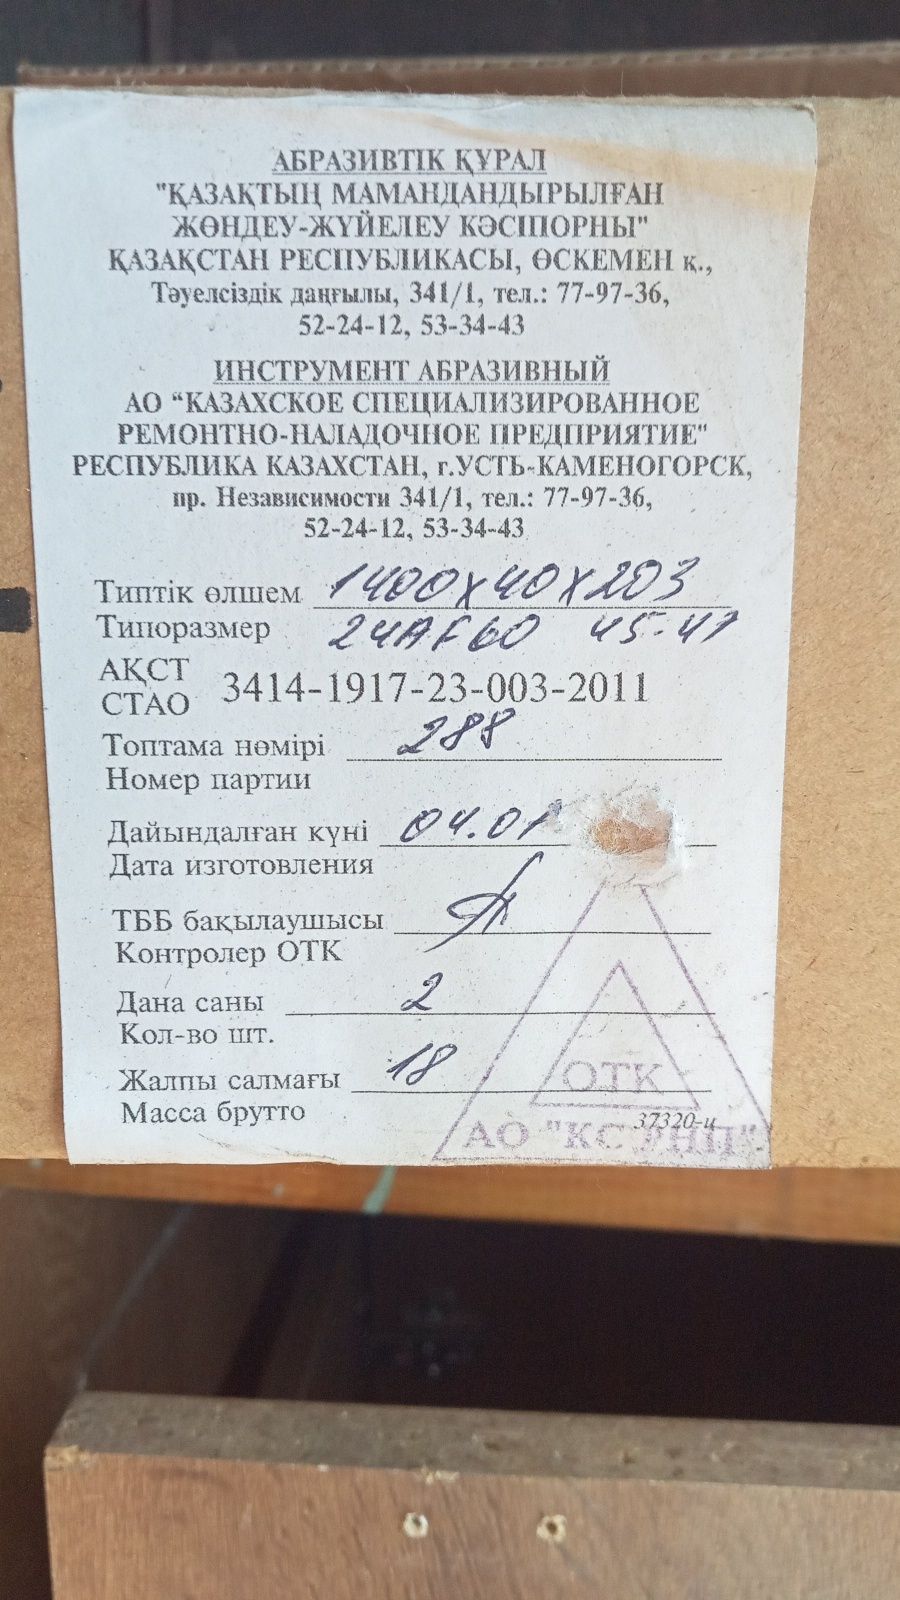 АБРАЗИВТІК ҚҰРАЛ
"ҚАЗАҚТЫҢ МАМАНДАНДЫРЫЛҒАН
ЖӨНДЕУ-ЖҮЙЕЛЕУ КӘСІПОРНЫ"
ҚАЗАҚСТАН РЕСПУБЛИКАСЫ, ӨСКЕМЕН қ.,
Тәуелсіздік даңғылы, 341/1, тел.: 77-97-36,
52-24-12, 53-34-43
ИНСТРУМЕНТ АБРАЗИВНЫЙ
АО “КАЗАХСКОЕ СПЕЦИАЛИЗИРОВАННОЕ
РЕМОНТНО-НАЛАДОЧНОЕ ПРЕДПРИЯТИЕ"
РЕСПУБЛИКА КАЗАХСТАН, г.УСТЬ-КАМЕНОГОРСК,
пр. Независимости 341/1, тел.: 77-97-36,
52-24-12, 53-34-43
Типтік өлшем 1400x40x203
Типоразмер 24AF60
АҚСТ
СТАО 3414-1917-23-003-2011
Топтама нөмірі 288
Номер партии
Дайындалған күні 04.01
Дата изготовления
ТББ бақылаушысы
Контролер ОТК
Дана саны 2
Кол-во шт.
Жалпы салмағы 18
Масса брутто
37320-и
ОТК
АО "КС РНП"